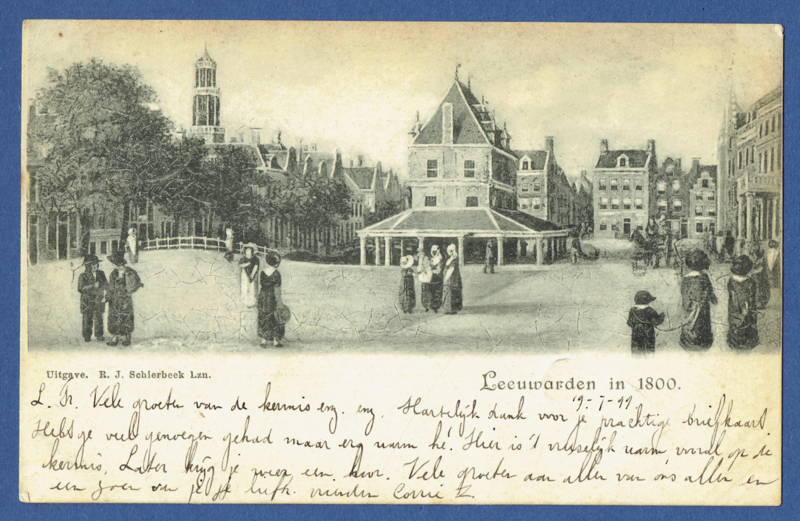 Uitgave. R. J. Schierbeek Lzn.
Leeuwarden in 1800.
19-7-99
L. Tr. Vele groeten van de kermis enz. enz. Hartelijk dank voor je prachtige briefkaart.
Hebt je veel genoegen gehad maar erg warm hè. Hier is 't vreeselijk warm vooral op de
kermis. Later krijg je weer een hoor. Vele groeten aan allen van ons allen en
een zoen van je liefh. vriendin Corrie Z.